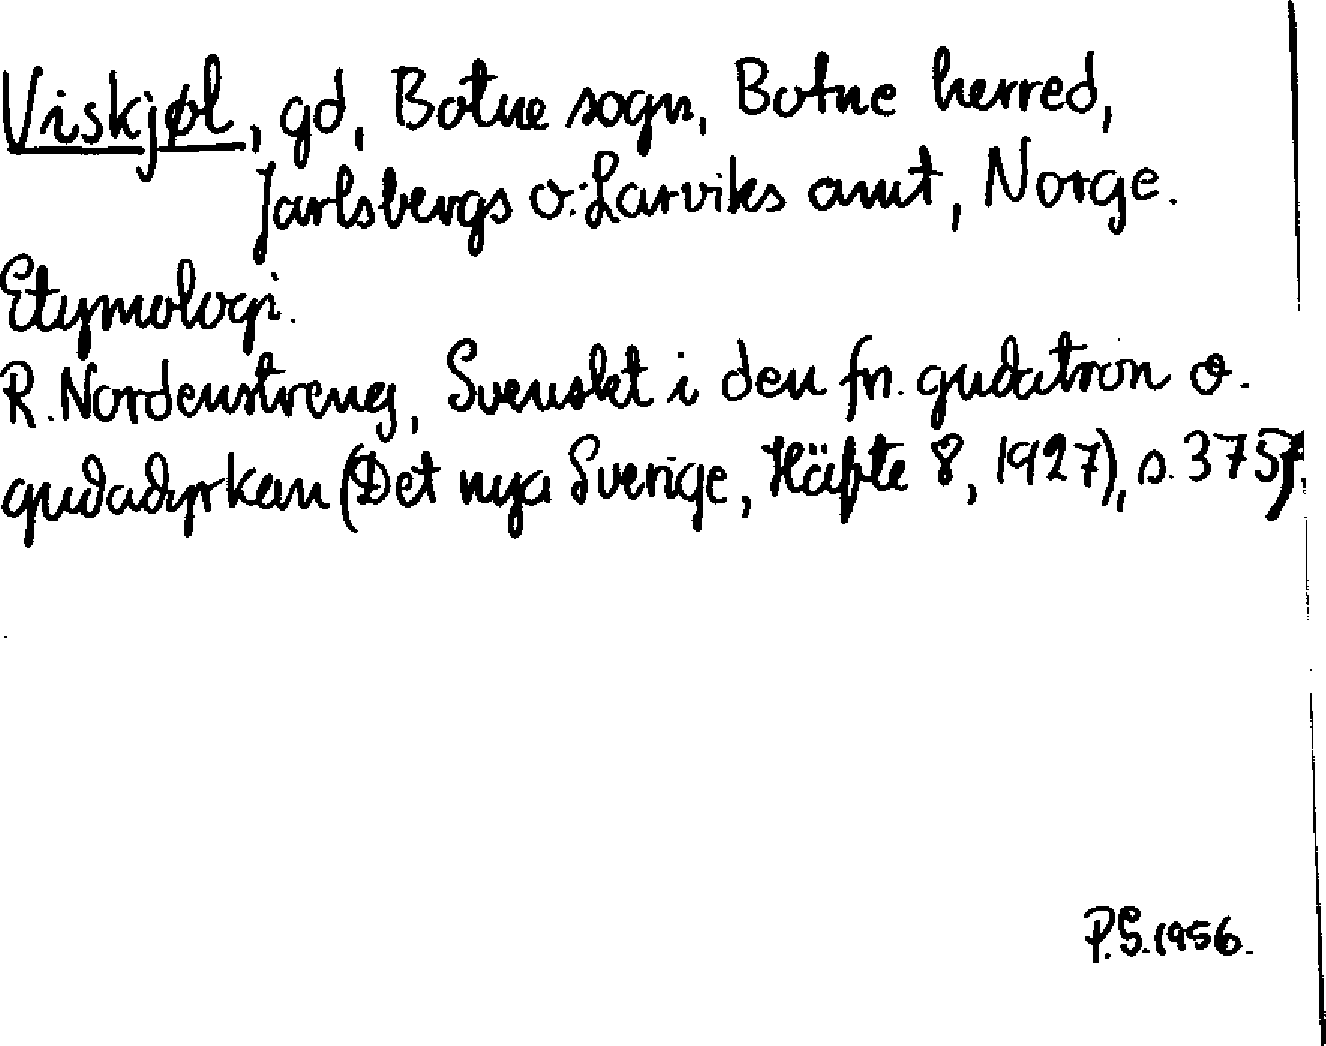 Viskjøl, gd, Botne sogn, Botne herred,
Jarlsbergs o. Larviks amt, Norge.
Etymologi.
R. Nordenstreng, Svenskt i den fn. gudatron o.
gudadyrkan (Det nya Sverige, Häfte 8, 1927), s. 375f.
P.S. 1956.